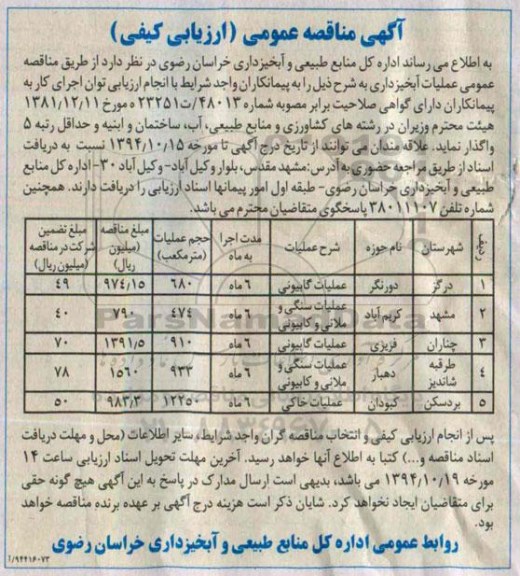 آگهی مناقصه عمومی (ارزیابی کیفی)
به اطلاع می رساند اداره کل منابع طبیعی و آبخیزداری خراسان رضوی در نظر دارد از طریق مناقصه
عمومی عملیات آبخیزداری به شرح ذیل را به پیمانکاران واجد شرایط با انجام ارزیابی توان اجرای کار به
پیمانکاران دارای گواهی صلاحیت برابر مصوبه شماره ۴۸۰۱۳/ت۲۳۲۵۱ ه مورخ ۱۳۸۱/۱۲/۱۱
هیئت محترم وزیران در رشته های کشاورزی و منابع طبیعی، آب، ساختمان و ابنیه و حداقل رتبه ۵
واگذار نماید. علاقه مندان می توانند از تاریخ درج آگهی تا مورخه ۱۳۹۴/۱۰/۱۵ نسبت به دریافت
اسناد از طریق مراجعه حضوری به آدرس: مشهد مقدس، بلوار وکیل آباد- وکیل آباد ۳۰- اداره کل منابع
طبیعی و آبخیزداری خراسان رضوی- طبقه اول امور پیمانها اسناد ارزیابی را دریافت دارند. همچنین
شماره تلفن ۳۸۰۱۱۱۰۷ پاسخگوی متقاضیان محترم می باشد.
ردیف شهرستان نام حوزه شرح عملیات مدت اجرا به ماه حجم عملیات (متر مکعب) مبلغ مناقصه (میلیون ریال) مبلغ تضمین شرکت در مناقصه (میلیون ریال)
۱ درگز دورنگر عملیات گابیونی ۶ ماه ۶۸۰ ۹۷۴/۱۵ ۴۹
۲ مشهد کریم آباد عملیات سنگی و ملاتی و گابیونی ۶ ماه ۴۷۴ ۷۹۰ ۴۰
۳ چناران فریزی عملیات گابیونی ۶ ماه ۹۱۰ ۱۳۹۱/۵ ۷۰
۴ طرقبه شاندیز دهبار عملیات سنگی و ملاتی و گابیونی ۶ ماه ۹۳۳ ۱۵۶۰ ۷۸
۵ بردسکن کبودان عملیات خاکی ۶ ماه ۱۲۲۵۰ ۹۸۳/۳ ۵۰
ParsNamadData
پس از انجام ارزیابی کیفی و انتخاب مناقصه گران واجد شرایط، سایر اطلاعات (محل و مهلت دریافت
اسناد مناقصه و...) کتبا به اطلاع آنها خواهد رسید. آخرین مهلت تحویل اسناد ارزیابی ساعت ۱۴
مورخ ۱۳۹۴/۱۰/۱۹ می باشد، بدیهی است ارسال مدارک در پاسخ به این آگهی هیچ گونه حقی
برای متقاضیان ایجاد نخواهد کرد. شایان ذکر است هزینه درج آگهی بر عهده برنده مناقصه خواهد
بود.
روابط عمومی اداره کل منابع طبیعی و آبخیزداری خراسان رضوی
/۹۴۴۱۶۰۷۳